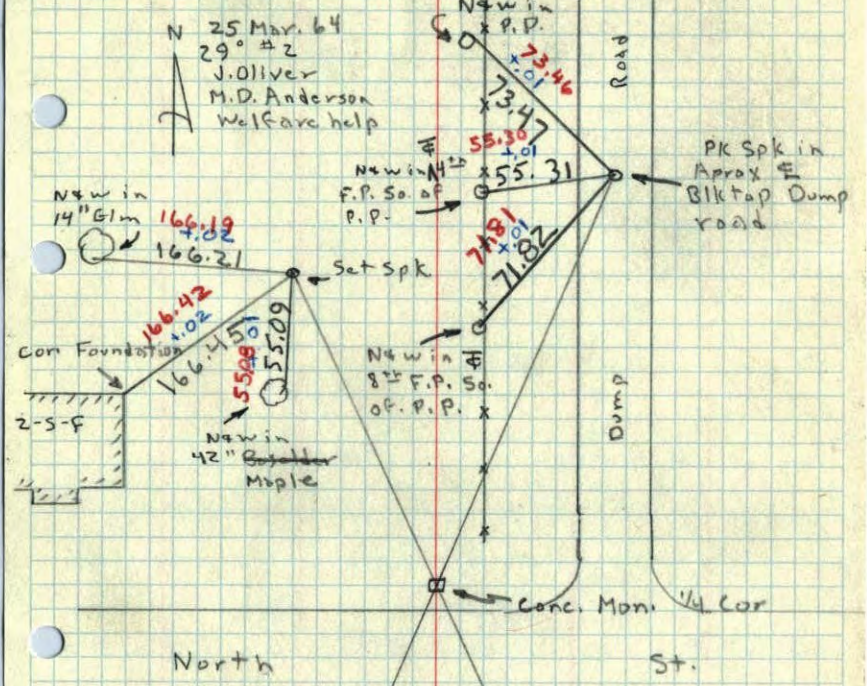 N&W in
P.P.
N
25 Mar. 64
29° #2
J. Oliver
M.D. Anderson
Welfare help
73.46
+.01
73.47
Road
55.30
+.01
55.31
N&W in 14th
F.P. So. of
P.P.
PK Spk in
Aprox ℄
Blktop Dump
road
N&W in
14" Elm
166.19
+.02
166.21
Set Spk
71.81
+.01
71.82
166.42
+.02
166.45
55.08
.01
55.09
Cor. Foundation
2-S-F
N&W in
8th F.P. So.
of P.P.
Dump
N&W in
42" Boxelder
Maple
Conc. Mon. 1/4 Cor
North St.